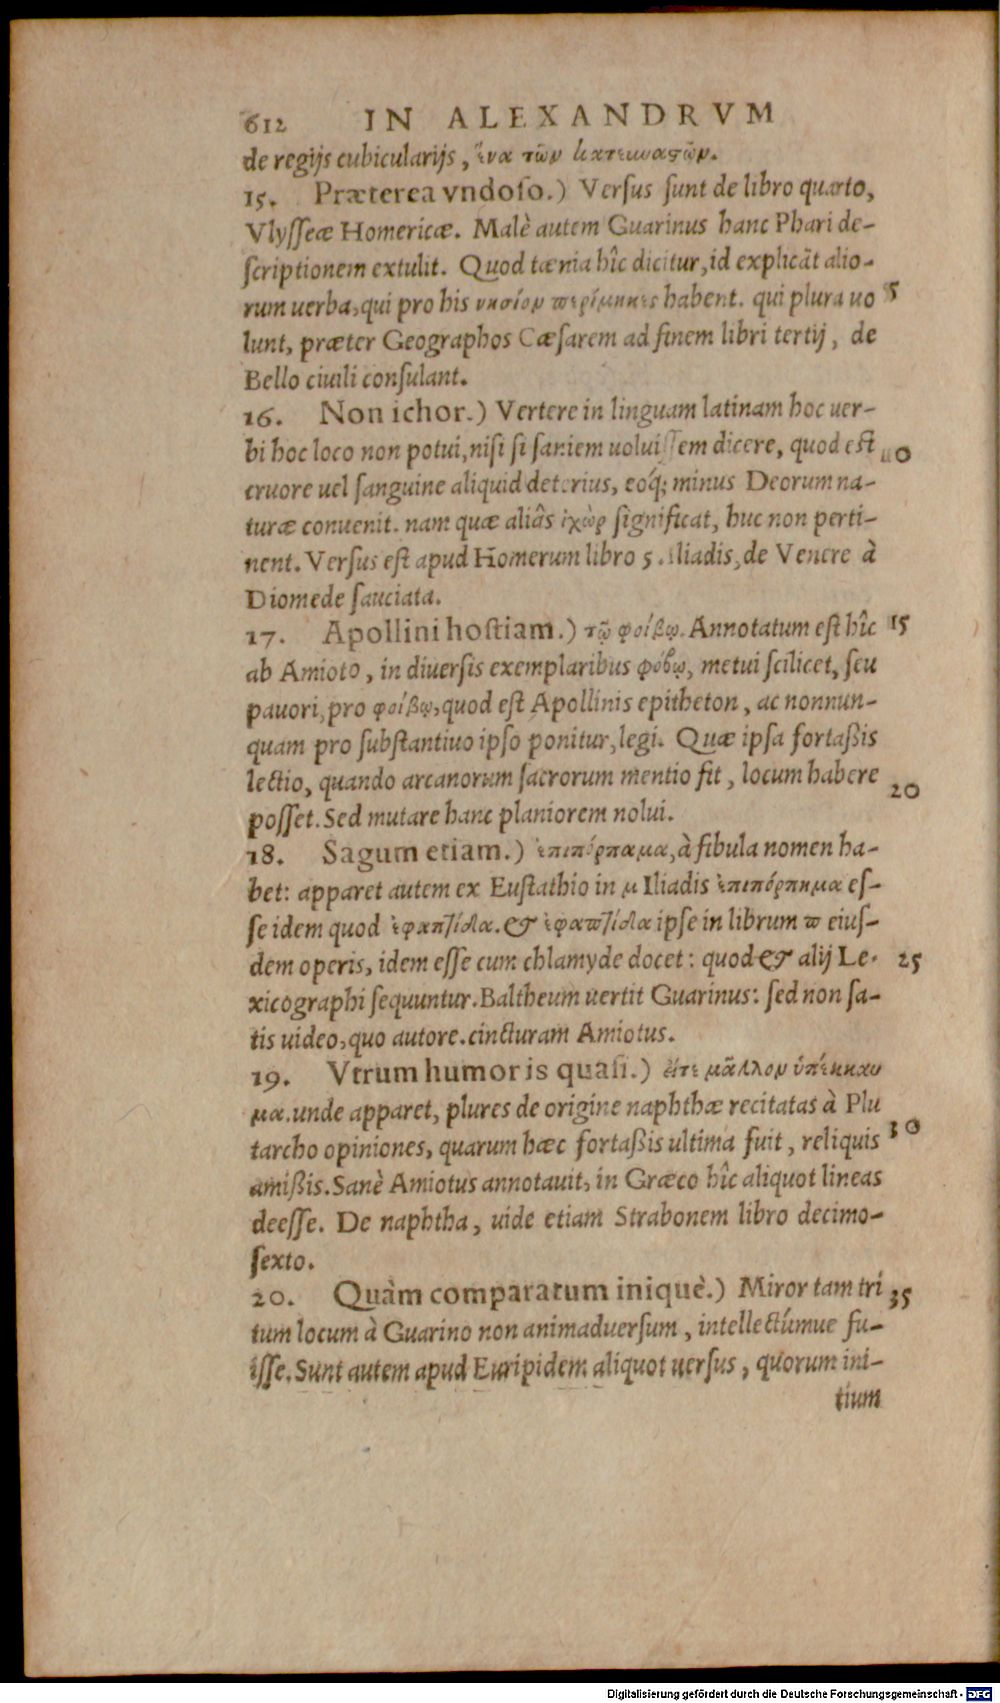 612 IN ALEXANDRVM
de regijs cubicularijs, ἕνα τῶν κατευναςῶν.
15. Præterea vndoso.) Versus sunt de libro quarto,
Vlysseæ Homericæ. Malè autem Guarinus hanc Phari de-
scriptionem extulit. Quod tænia hîc dicitur, id explicāt alio-
rum uerba, qui pro his νησίον περίμηκες habent. qui plura uo 5
lunt, præter Geographos Cæsarem ad finem libri tertij, de
Bello ciuili consulant.
16. Non ichor.) Vertere in linguam latinam hoc uer-
bi hoc loco non potui, nisi si saniem uoluissem dicere, quod est 10
cruore uel sanguine aliquid deterius, eóq; minus Deorum na-
turæ conuenit. nam quæ aliâs ἰχὼρ significat, huc non perti-
nent. Versus est apud Homerum libro 5. Iliadis, de Venere à
Diomede sauciata.
17. Apollini hostiam.) τῷ φοίβῳ. Annotatum est hîc 15
ab Amioto, in diuersis exemplaribus φόβῳ, metui scilicet, seu
pauori, pro φοίβῳ, quod est Apollinis epitheton, ac nonnun-
quam pro substantiuo ipso ponitur, legi. Quæ ipsa fortaßis
lectio, quando arcanorum sacrorum mentio fit, locum habere
posset. Sed mutare hanc planiorem nolui. 20
18. Sagum etiam.) ἐπιπόρπαμα, à fibula nomen ha-
bet: apparet autem ex Eustathio in μ Iliadis ἐπιπόρπημα es-
se idem quod ἐφαπτίδα. & ἐφαπτίδα ipse in librum π eius-
dem operis, idem esse cum chlamyde docet: quod & alij Le- 25
xicographi sequuntur. Baltheum uertit Guarinus: sed non sa-
tis uideo, quo autore. cincturam Amiotus.
19. Vtrum humoris quasi.) εἴτε μᾶλλον ὑπέκκαυ
μα. unde apparet, plures de origine naphthæ recitatas à Plu
tarcho opiniones, quarum hæc fortaßis ultima fuit, reliquis 30
amißis. Sanè Amiotus annotauit, in Græco hîc aliquot lineas
deesse. De naphtha, uide etiam Strabonem libro decimo-
sexto.
20. Quàm comparatum iniquè.) Miror tam tri 35
tum locum à Guarino non animaduersum, intellectúmue fu-
isse. Sunt autem apud Euripidem aliquot uersus, quorum ini-
tium
Digitalisierung gefördert durch die Deutsche Forschungsgemeinschaft - DFG